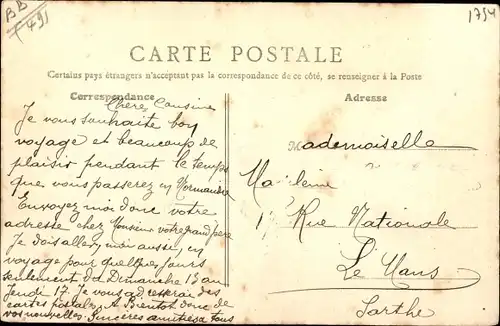 BD
491
1754
CARTE POSTALE
Certains pays étrangers n'acceptant pas la correspondance de ce côté, se renseigner à la Poste
Correspondance
Adresse
Chère Cousine
Je vous souhaite bon
voyage et beaucoup de
plaisir pendant le temps
que vous passerez en Normandie
Envoyez moi donc votre
adresse chez Monsieur votre grand père
Je dois aller, moi aussi, en
voyage pour quelques jours
seulement du Dimanche 13 au
Jeudi 17. Je vous adresserai des
cartes postales. A Bientôt donc de
vos nouvelles. Sincères amitiés à tous
Mademoiselle
Rue Nationale
Le Mans
Sarthe